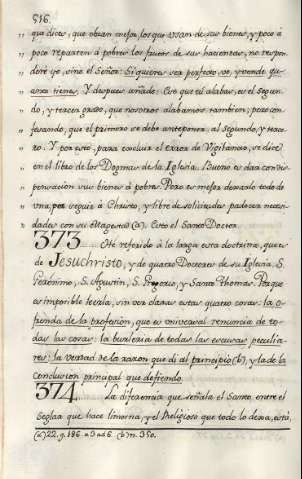 516.
„ que dicen, que obran mejor los que usan de sus bienes, y poco á
„ poco reparten á pobres los frutos de sus haciendas, no respon-
„ deré yo, sino el Señor: Si quieres ser perfecto ve, y vende qu-
„ anto tienes. Y despues añade: Ese que tu alabas, es el segun-
„ do, y tercer grado, que nosotros alabamos tambien; pero con-
„ fesando, que el primero se debe anteponer al segundo, y terce-
„ ro. Y por esto, para concluir el error de Vigilancio, se dice
„ en el libro de los Dogmas de la Iglesia: Bueno es dar con dis-
„ pensacion sus bienes á pobres. Pero es mejor dexarlo todo de
„ una, por seguir á Christo, y libre de solicitudes padecer necesi-
„ dades con su Magestad (a). Esto el Santo Doctor.
373 He referido á la larga esta doctrina, que es
de Jesuchristo, y de quatro Doctores de su Iglesia, S.
Geronimo, S. Agustin, S. Gregorio, y Santo Thomas. Porque
es imposible leerla, sin ver claras estas quatro cosas: la o-
frenda de la profesion, que es universal renuncia de to-
das las cosas: la burleria de todas las escusas peculia-
res: la verdad de la razon que di al principio (b), y la de la
conclusion principal que defiendo.
374 La diferencia que señala el Santo entre el
Seglar que hace limosna, y el Religioso que todo lo dexa, está,
(a) 22. q. 186. a 3 ad 6. (b) n. 350.